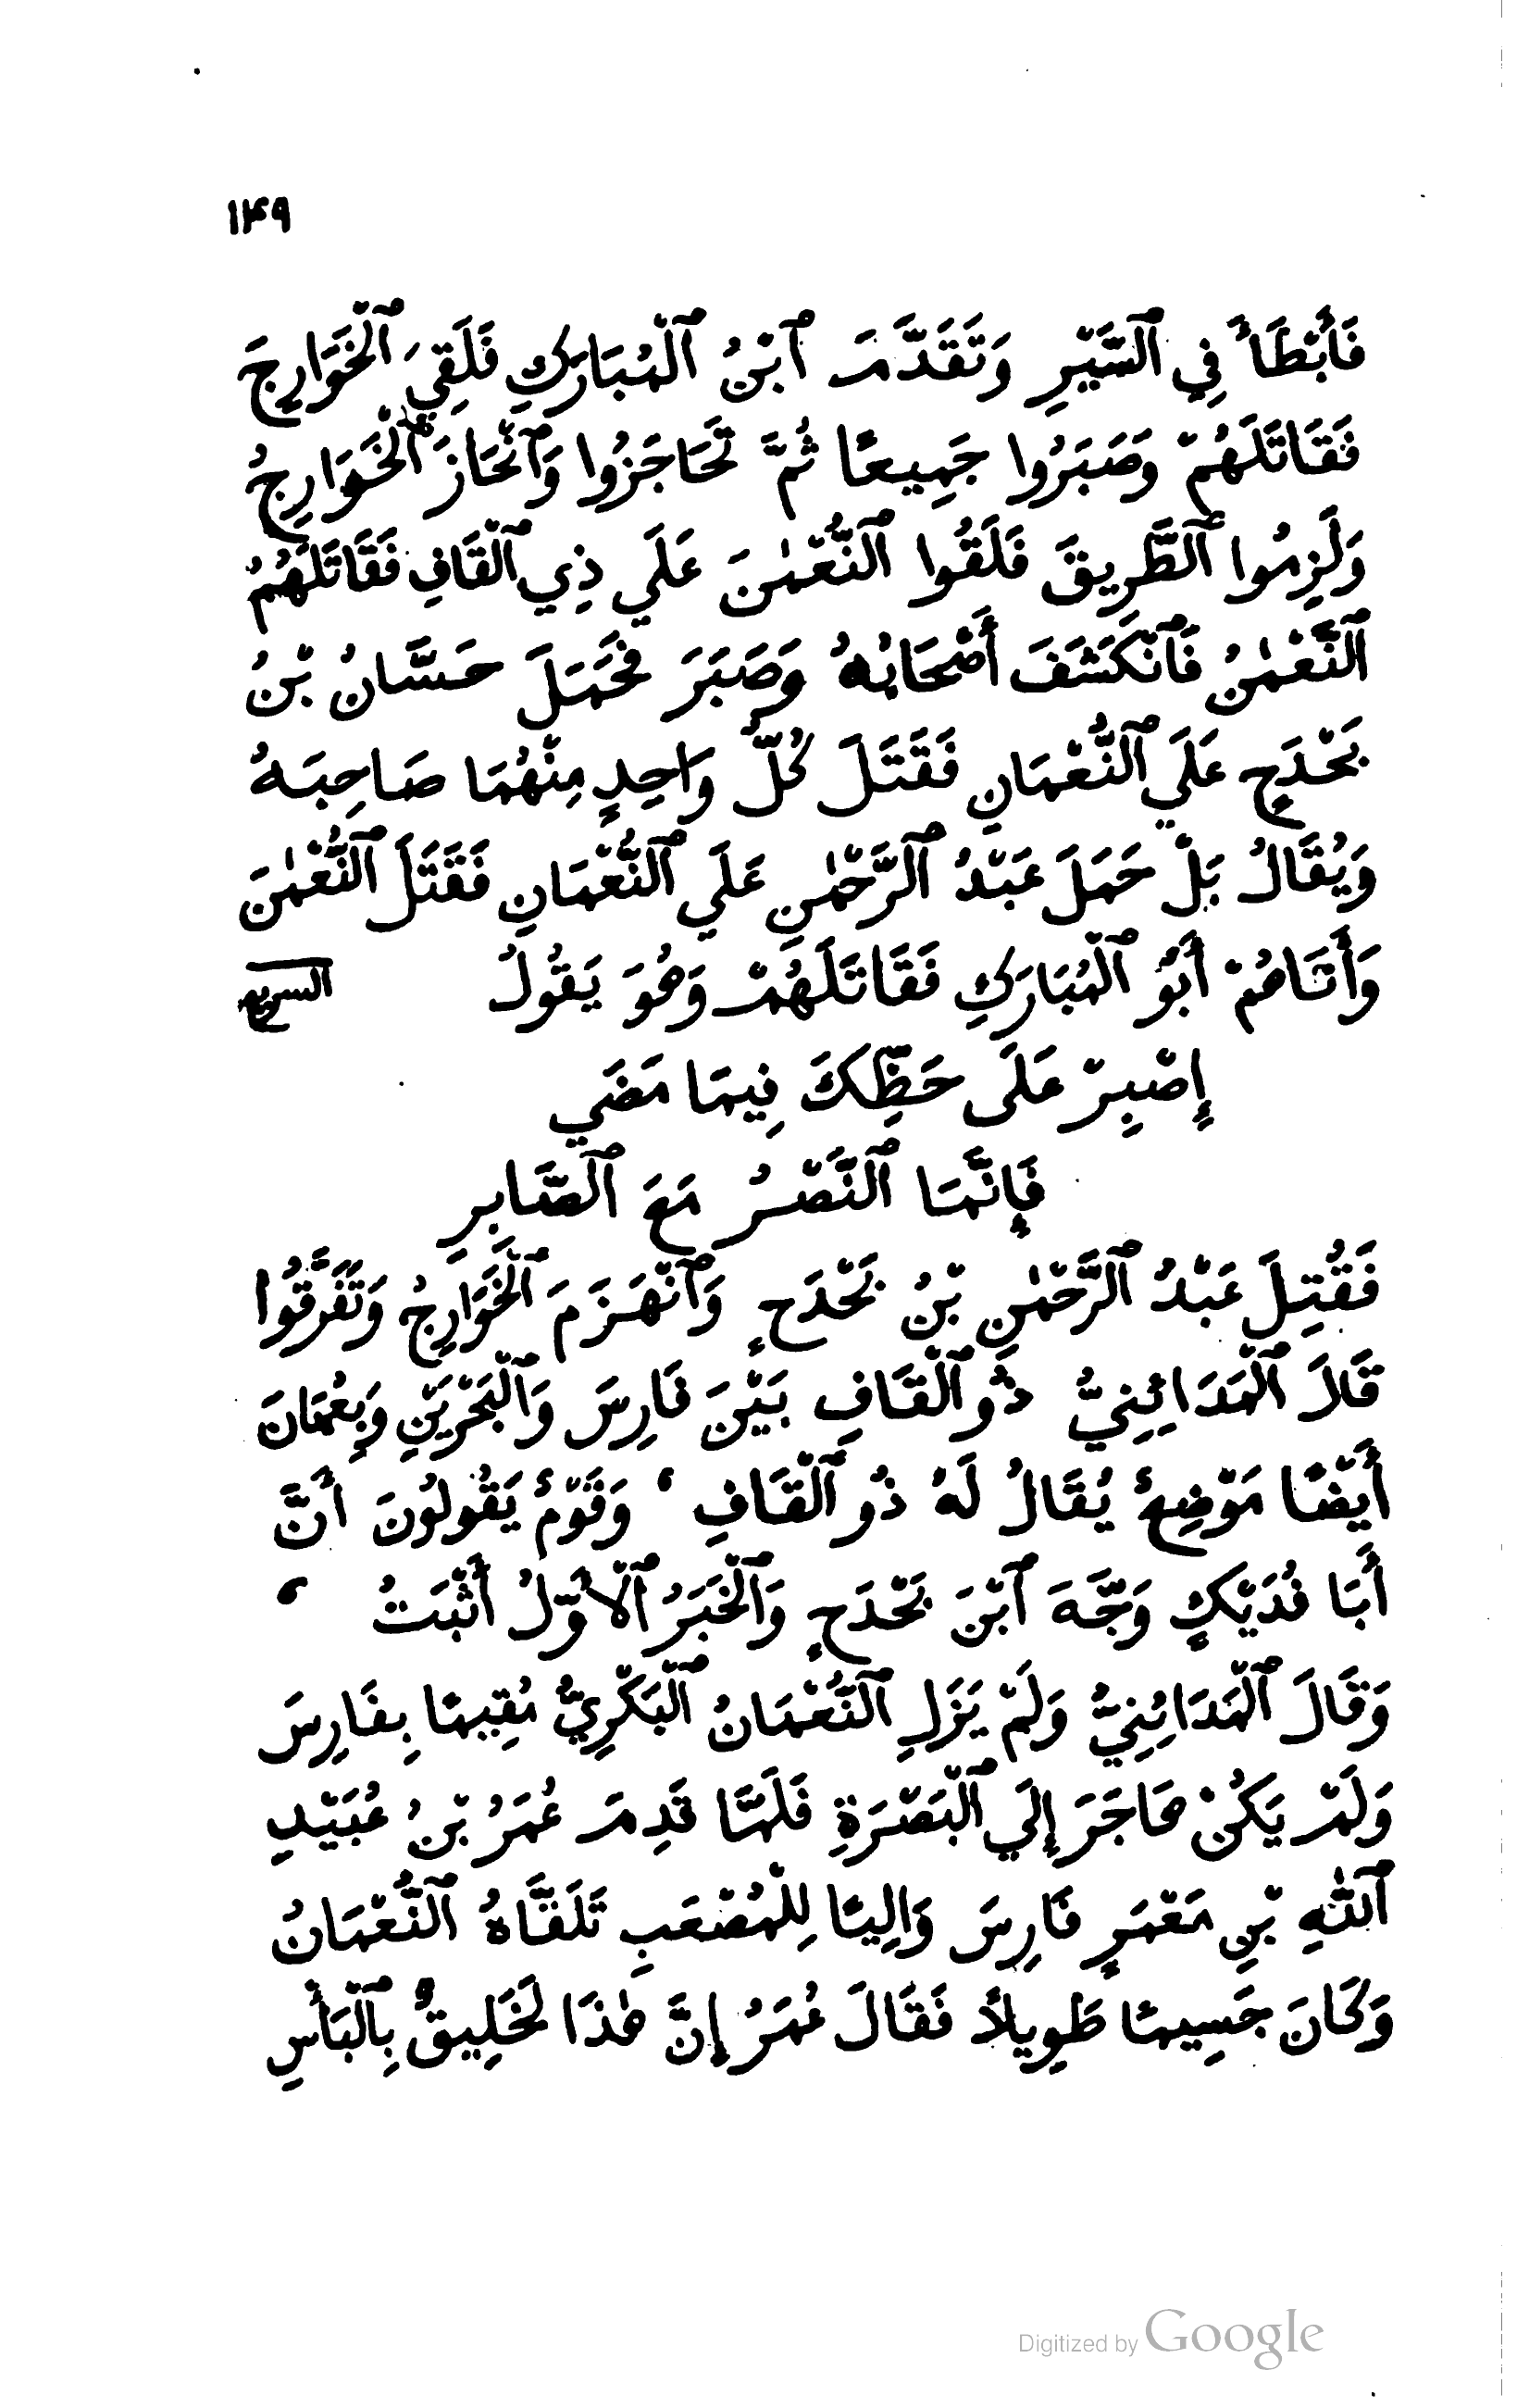 ١٣٩
فَأَبْطَأَ فِي ٱلسَّيْرِ وَتَقَدَّمَ ٱبْنُ ٱلْمُبَارَكِ فَلَقِيَ ٱلْخَوَارِجَ
فَقَاتَلَهُمْ وَصَبَرُوا جَمِيعًا ثُمَّ تَحَاجَزُوا وَٱنْحَازَ ٱلْخَوَارِجُ
وَلَزِمُوا ٱلطَّرِيقَ فَلَقُوا ٱلنُّعْمٰنَ عَلَي ذِي ٱلْقَافِ فَقَاتَلَهُمُ
ٱلنُّعْمٰنُ فَٱنْكَشَفَ أَصْحَابُهُ وَصَبَرَ فَحَمَلَ حَسَّانُ بْنُ
بَحْدَجٍ عَلَي ٱلنُّعْمَانِ فَقَتَلَ كُلُّ وَاحِدٍ مِنْهُمَا صَاحِبَهُ
وَيُقَالُ بَلْ حَمَلَ عَبْدُ ٱلرَّحْمٰنِ عَلَي ٱلنُّعْمَانِ فَقَتَلَ ٱلنُّعْمٰنَ
وَأَتَاهُمْ أَبُو ٱلْمُبَارَكِ فَقَاتَلَهُمْ وَهُوَ يَقُولُ السريع
إِصْبِرْ عَلَى حَظِّكَ فِيمَا مَضَي
فَإِنَّمَا ٱلنَّصْرُ مَعَ ٱلصَّابِرِ
فَقُتِلَ عَبْدُ ٱلرَّحْمٰنِ بْنُ بَحْدَحٍ وَٱنْهَزَمَ ٱلْخَوَارِجُ وَتَفَرَّقُوا
قَالَ ٱلْمَدَائِنِيُّ ذُو ٱلْقَافِ بَيْنَ فَارِسَ وَٱلْبَحْرَيْنِ وَبِعُمَانَ
أَيْضًا مَوْضِعٌ يُقَالُ لَهُ ذُو ٱلْقَافِ ، وَقَوْمٌ يَقُولُونَ أَنَّ
أَبَا فُدَيْكٍ وَجَّهَ ٱبْنَ بَحْدَحٍ وَٱلْخَبَرُ ٱلْأَوَّلُ أَثْبَتُ ،
وَقَالَ ٱلْمَدَائِنِيُّ وَلَمْ يَزَلِ ٱلنُّعْمَانُ ٱلْبَكْرِيُّ مُقِيمًا بِفَارِسَ
وَلَمْ يَكُنْ هَاجَرَ إِلَي ٱلْبَصْرَةِ فَلَمَّا قَدِمَ عُمَرُ بْنُ عُبَيْدِ
ٱللّٰهِ بْنِ مَعْمَرٍ فَارِسَ وَالِيًا لِلْمُصْعَبِ تَلَقَّاهُ ٱلنُّعْمَانُ
وَكَانَ جَسِيمًا طَوِيلًا فَقَالَ عُمَرُ إِنَّ هٰذَا لَخَلِيقٌ بِٱلْبَأْسِ
Digitized by Google